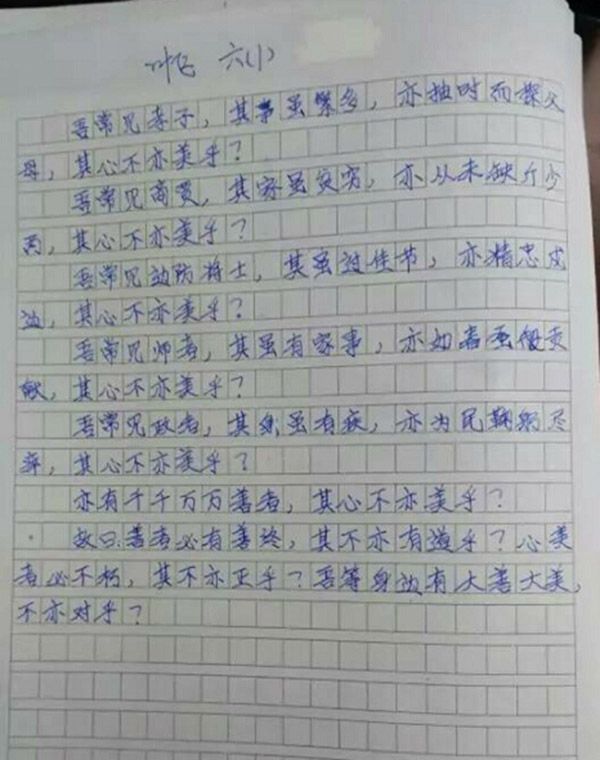 叶飞 六(1)
吾常见孝子，其事虽繁多，亦抽时而探父
母，其心不亦美乎？
吾常见商贾，其家虽贫穷，亦从未缺斤少
两，其心不亦美乎？
吾常见边防将士，其虽过佳节，亦精忠戍
边，其心不亦美乎？
吾常见师者，其虽有家事，亦如春蚕做贡
献，其心不亦美乎？
吾常见政者，其虽有疾，亦为民鞠躬尽
瘁，其心不亦美乎？
亦有千千万万善者，其心不亦美乎？
故曰：善者必有善终，其不亦有道乎？心美
者必不朽，其不亦正乎？吾等身边有大善大美，
不亦对乎？